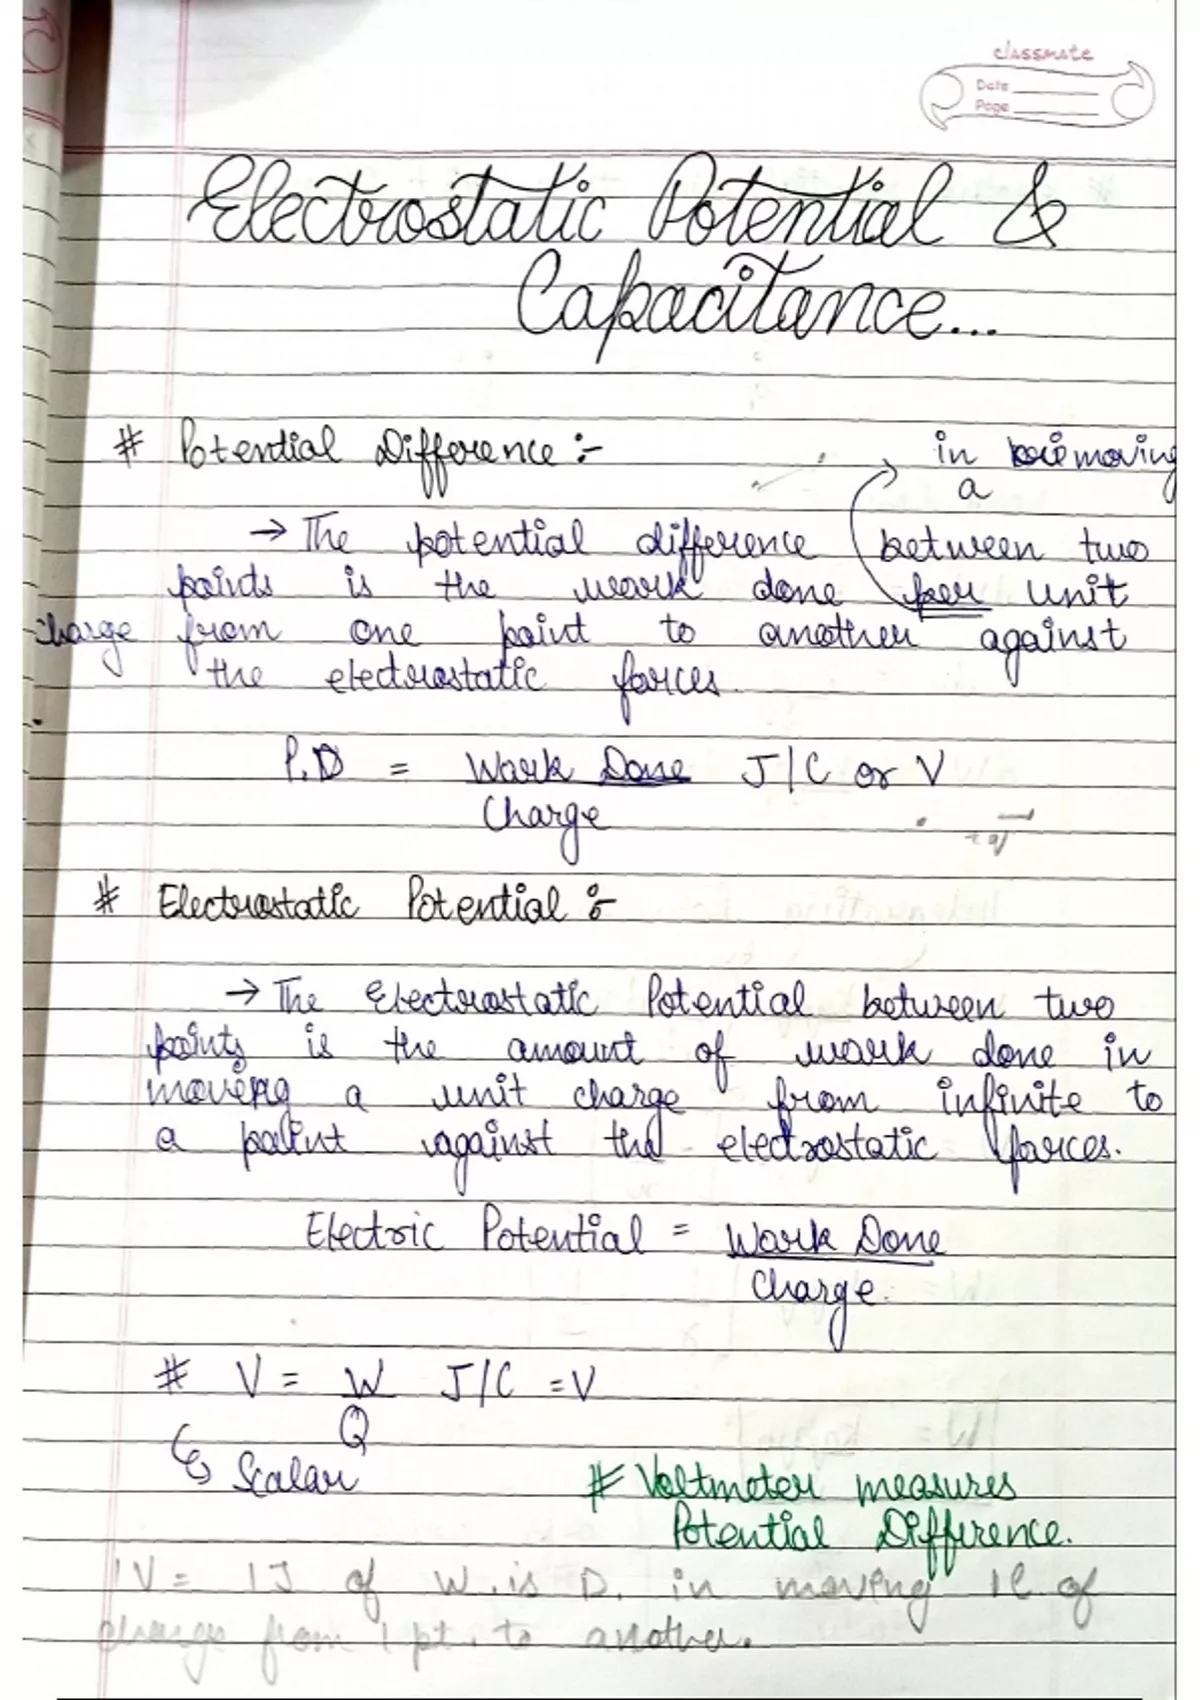 classmate
Date
Page
Electrostatic Potential &
Capacitance...
# Potential Difference :-
in moving
a
→ The potential difference between two
points is the work done per unit
charge from one point to another against
the electrostatic forces.
P.D = Work Done J/C or V
Charge
# Electrostatic Potential :-
→ The Electrostatic Potential between two
points is the amount of work done in
moving a unit charge from infinite to
a point against the electrostatic forces.
Electric Potential = Work Done
Charge.
# V = W J/C = V
Q
↪ Scalar
# Voltmeter measures
Potential Difference.
1V = 1J of W. is D. in moving 1C of
charge from 1 pt. to another.